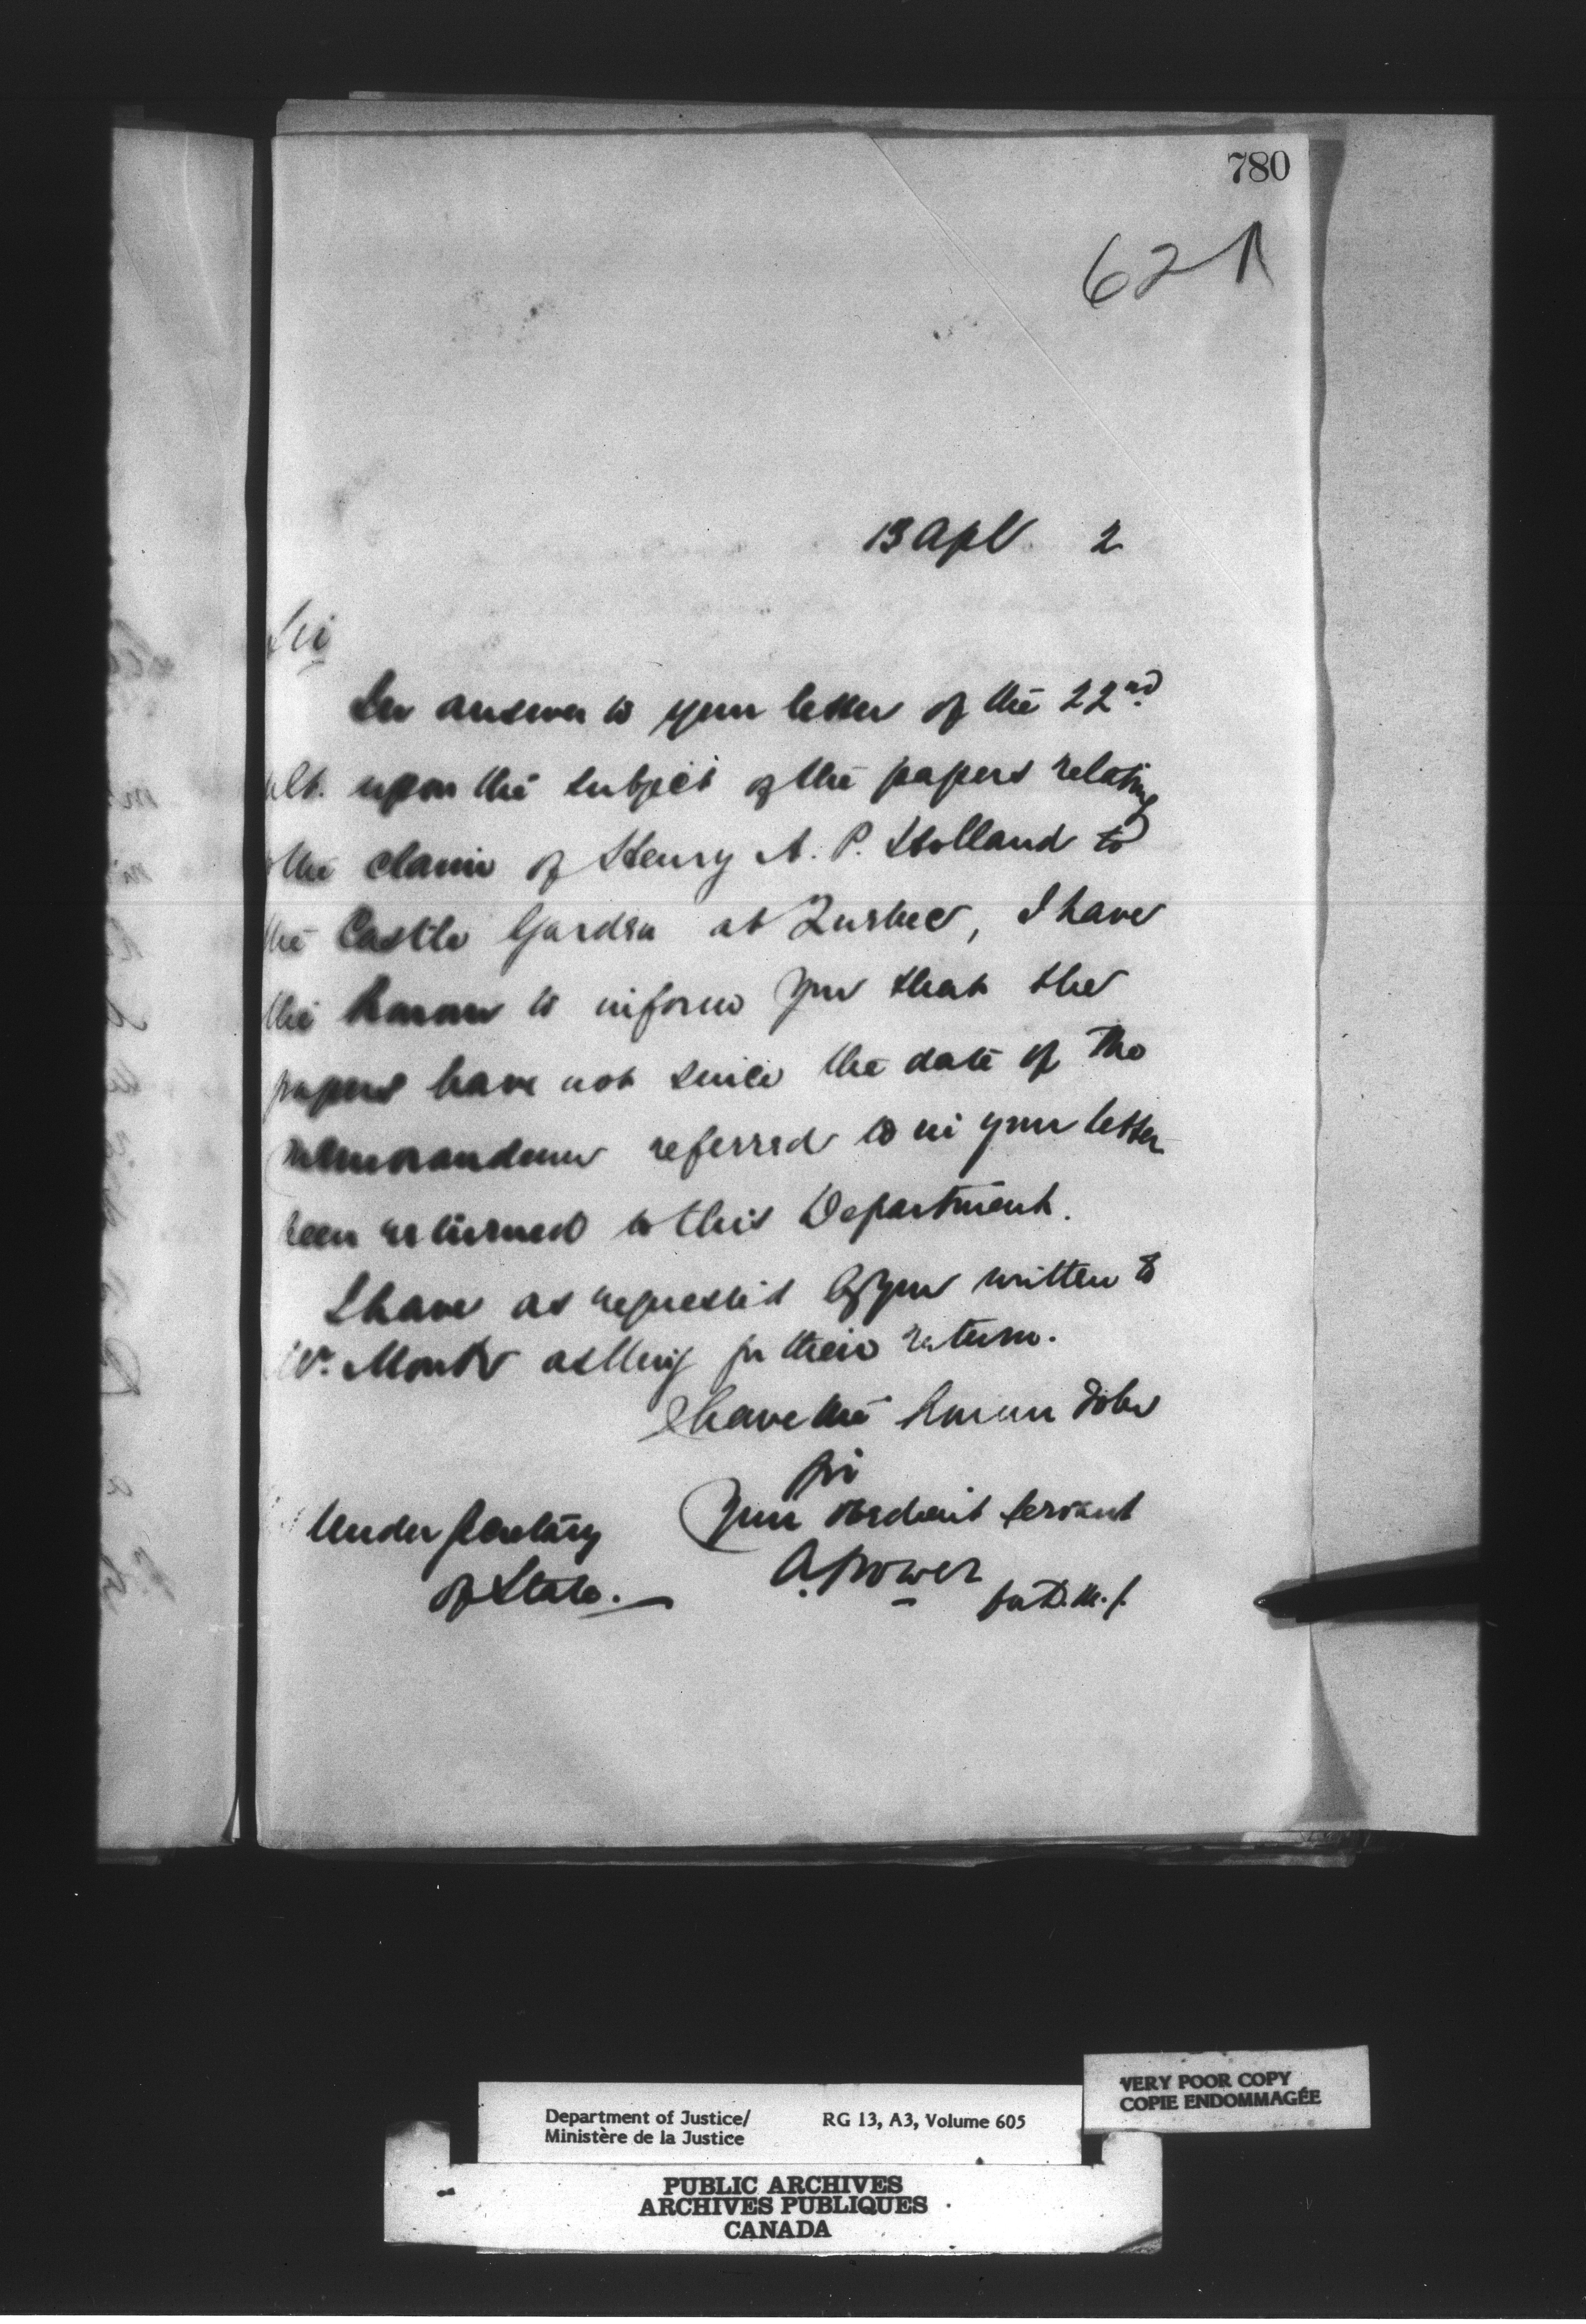 780
621
13 Apl 2
Sir
In answer to your letter of the 22nd.
ult. upon the subject of the papers relating
the claim of Henry A. P. Holland to
the Castle Garden at Quebec, I have
the honour to inform you that the
papers have not since the date of the
memorandum referred to in your letter
been returned to this Department.
I have as requested by you written to
Mr. asking for their return.
I have the honour to be
Sir
Your obedient servant
Under Secretary
of State.
A. Power
for D.M.J.
VERY POOR COPY
COPIE ENDOMMAGÉE
Department of Justice/ RG 13, A3, Volume 605
Ministère de la Justice
PUBLIC ARCHIVES
ARCHIVES PUBLIQUES
CANADA